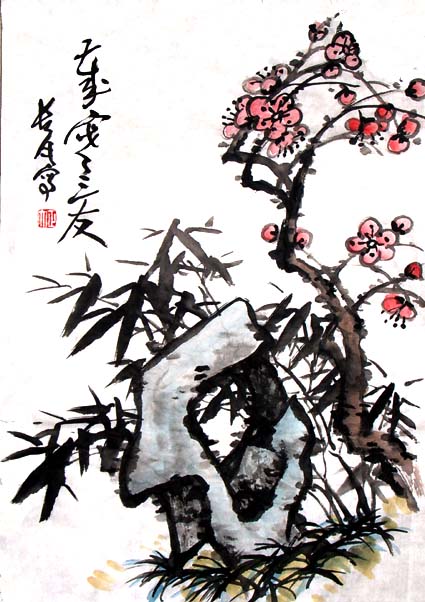 岁寒三友
长 写